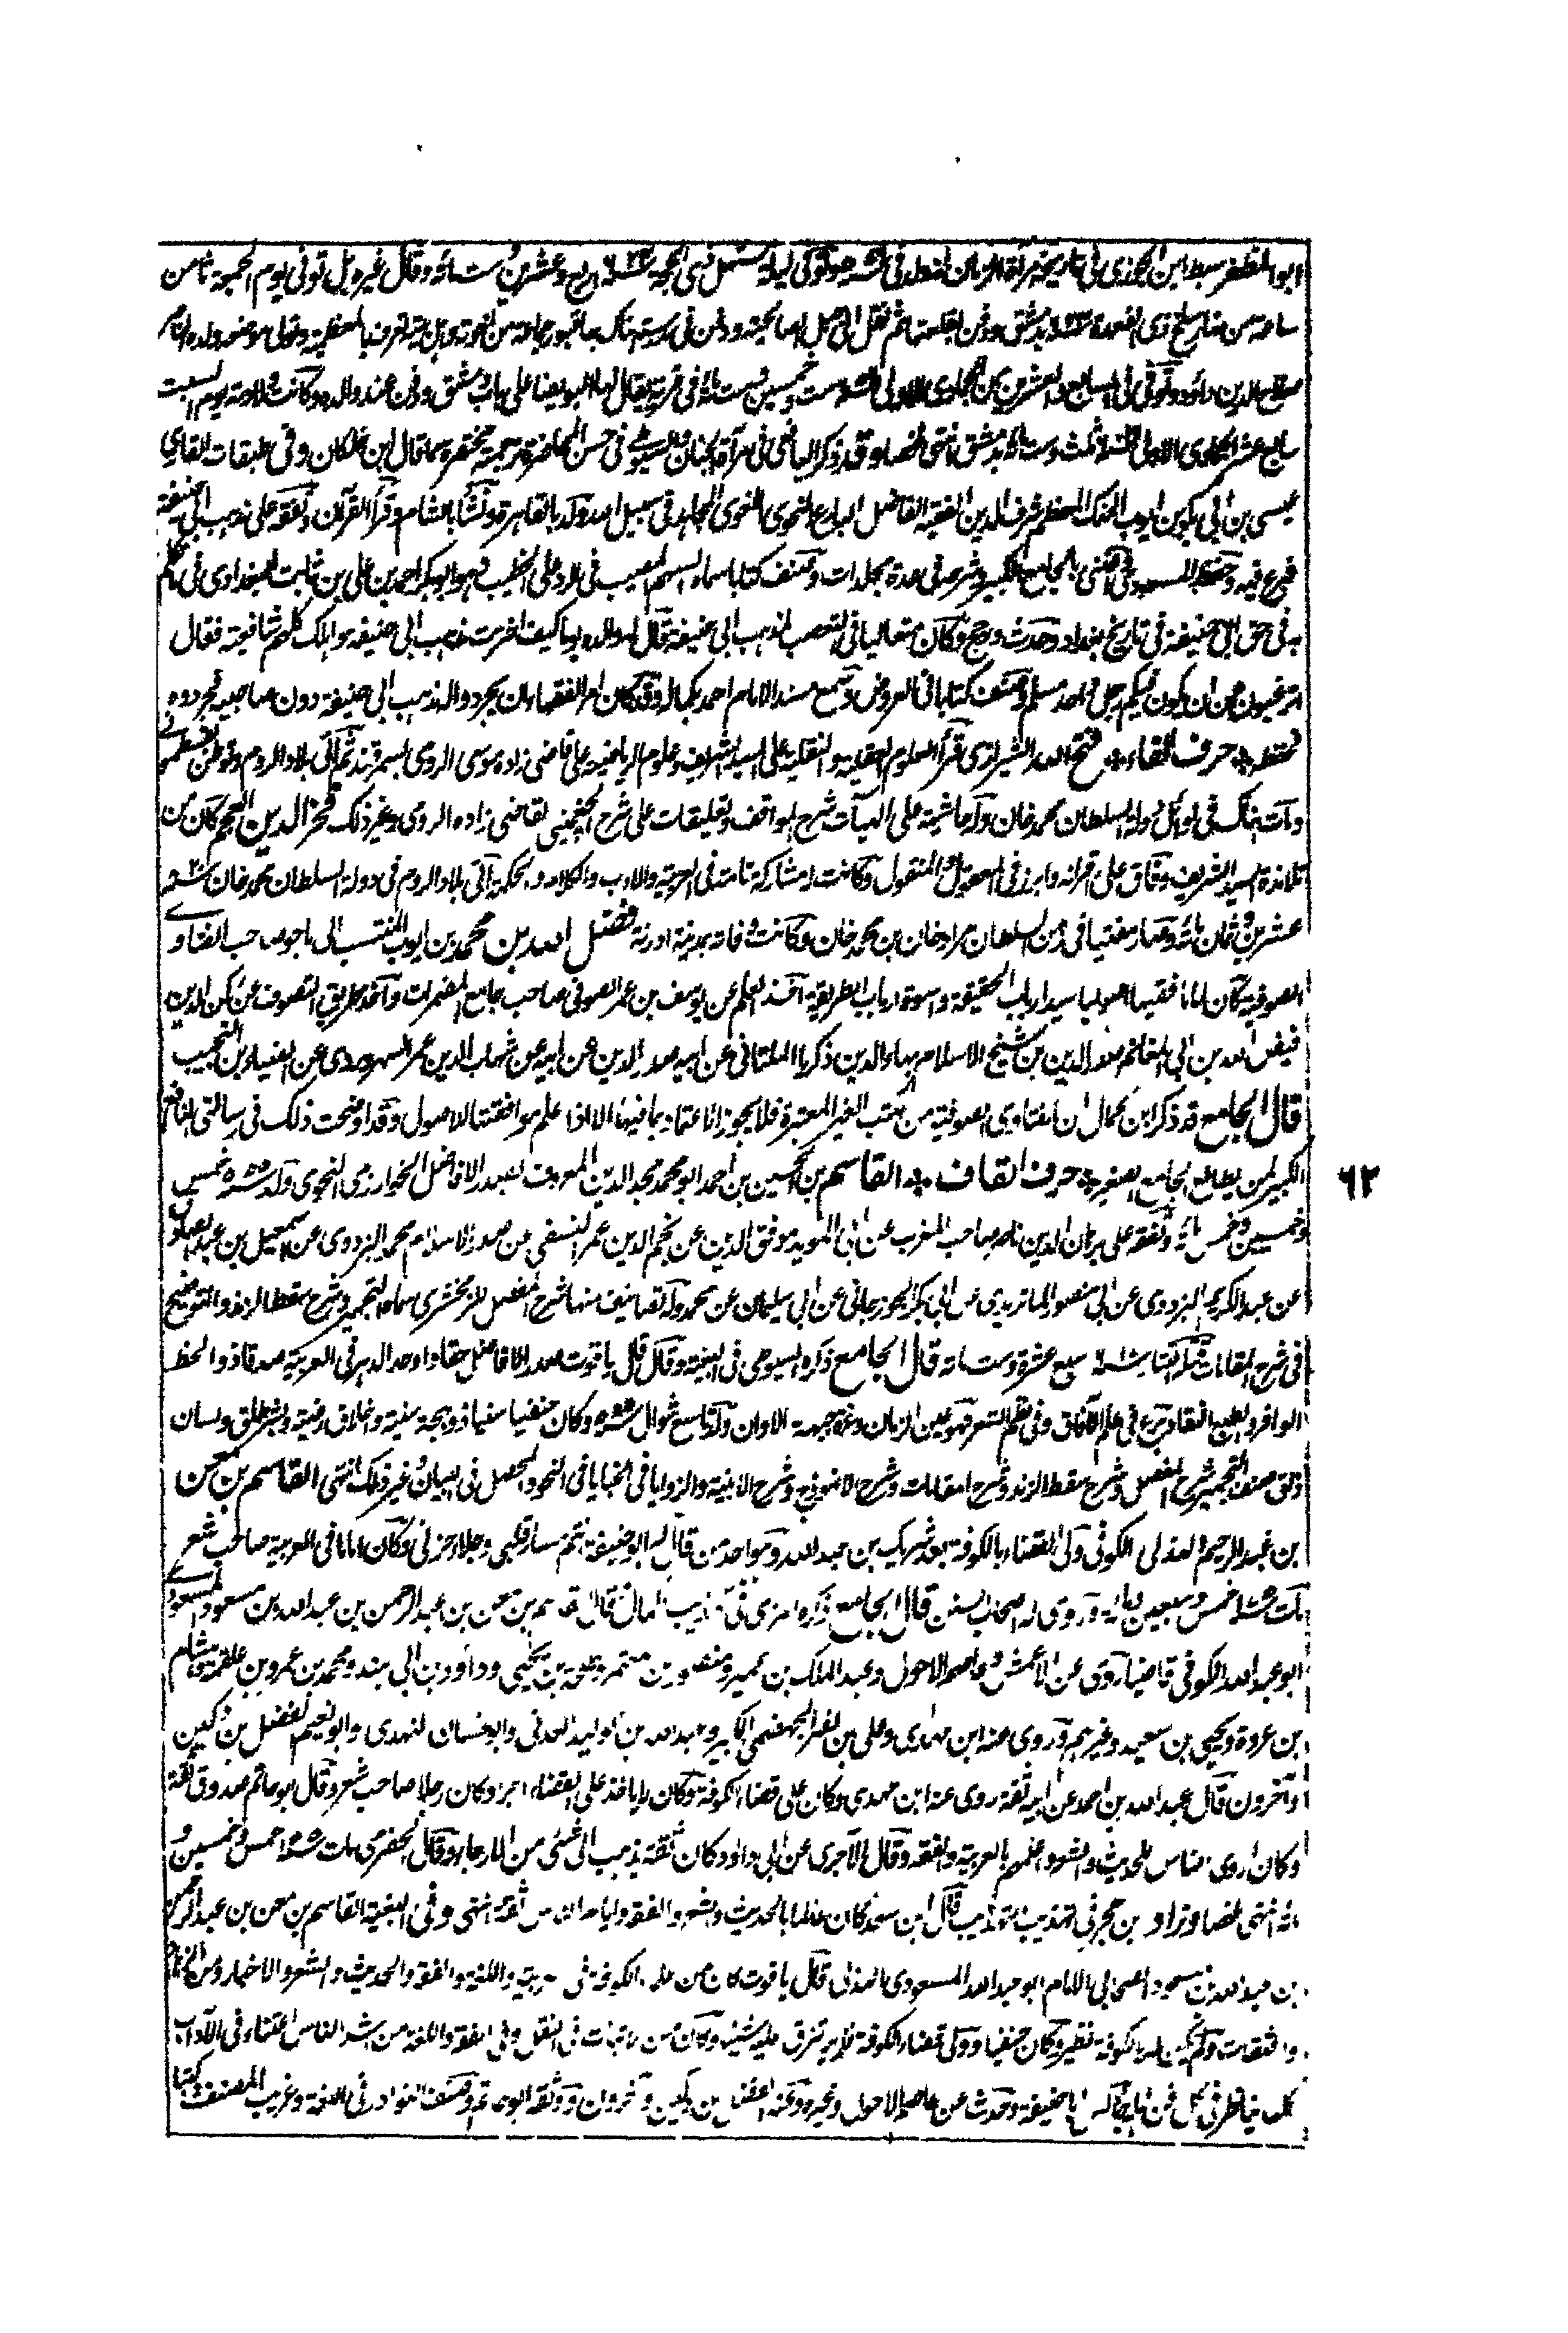 ابو المظفر سبط ابن الجوزي في تاريخه مرآة الزمان توفي ليلة مستهل ذي الحجة سنة ٦٢٤ اربع وعشرين وست مائة وقال غيره بل توفي يوم الجمعة ثامن
ساعة من نهار سلخ ذي القعدة بدمشق ودفن بقلعتها ثم نقل الى جبل الصالحية ودفن في مدرسته هناك بها قبور جماعة من اخوته واهل بيته تعرف بالمعظمية وتولى موضعه ولده الناصر
صلاح الدين داود وتوفي في السابع والعشرين من جمادى الاولى سنة ست وخمسين وست مائة في قرية يقال لها البويضا على باب دمشق ودفن عند والده وكانت ولادته يوم السبت
سابع عشر جمادى الاولى سنة ثلث وست مائة بدمشق انتهى ملخصا وقد ذكر اليافعي في مرآة الجنان والسيوطي في حسن المحاضرة ترجمته مختصرة مما قال ابن خلكان وفي طبقات القاري
عيسى بن ابي بكر بن ايوب الملك المعظم شرف الدين الفقيه الفاضل البارع النحوي اللغوي المجاهد في سبيل الله ولد بالقاهرة ونشأ بالشام وقرأ القرآن وتفقه على مذهب ابي حنيفة
فبرع فيه وحفظ المسعودي واعتنى بالجامع الكبير وشرحه في عدة مجلدات وصنف كتابا سماه السهم المصيب في الرد على الخطيب وهو ابو بكر احمد بن علي بن ثابت البغدادي في ما تكلم
به في حق ابي حنيفة في تاريخ بغداد وحدث وحج وكان متغاليا في التعصب لمذهب ابي حنيفة قال له والده يوما كيف اخترت مذهب ابي حنيفة واهلك كلهم شافعية فقال
اترغبون عن ان يكون فيكم رجل واحد مسلم وصنف كتابا في العروض وسمع مسند الامام احمد بكماله وقد كان امر الفقهاء ان يجردوا له مذهب ابي حنيفة دون صاحبيه فجردوه
فحفظه * حرف الفاء * فتح الله الشيرازي قرأ العلوم العقلية والنقلية على السيد الشريف وعلوم الرياضية على قاضي زاده موسى الرومي بسمرقند ثم اتى بلاد الروم وتوطن قسطموني
ومات هناك في اوائل دولة السلطان محمد خان وله حاشية على الهيآت شرح المواقف وتعليقات على شرح الچغميني لقاضي زاده الرومي وغير ذلك فخر الدين العجم كان من
تلامذة السيد الشريف وفاق على اقرانه وابرز في المعقول والمنقول وكانت له مشاركة تامة في العربية والادب والكلام والحكمة اتى بلاد الروم في دولة السلطان محمد خان سنة
عشرين وثمان مائة وصار مفتيا في زمن السلطان مراد خان بن محمد خان وكانت وفاته بمدينة ادرنة فضل الله بن محمد بن ايوب المنتسب الى ماجو صاحب الفتاوى
الصوفية كان اماما فقيها اصوليا سيد ارباب الحقيقة واسوة ارباب الطريقة اخذ العلم عن يوسف بن عمر الصوفي صاحب جامع المضمرات واخذ طريق التصوف عن ركن الدين
فيض الله بن ابي المغانم صدر الدين بن شيخ الاسلام بهاء الدين زكريا الملتاني عن ابيه صدر الدين عن ابيه عن شهاب الدين عمر السهروردي عن ابي النجيب
قال الجامع قد ذكر ابن كمال ان الفتاوى الصوفية من الكتب الغير المعتبرة فلا يجوز الاعتماد بما فيها الا اذا علم موافقتها للاصول وقد اوضحت ذلك في رسالتي النافع
الكبير لمن يطالع الجامع الصغير * حرف القاف * القاسم بن الحسين بن احمد ابو محمد مجد الدين المعروف بصدر الافاضل الخوارزمي النحوي ولد سنة ٥٥٥ خمس
وخمسين وخمس مائة وتفقه على برهان الدين ناصر صاحب المغرب عن ابي المويد موفق الدين عن نجم الدين عمر النسفي عن صدر الاسلام محمد البزدوي عن اسمعيل بن عبد الصادق
عن عبد الكريم البزدوي عن ابي منصور الماتريدي عن ابي بكر الجوزجاني عن ابي سليمان عن محمد وله تصانيف منها شرح المفصل للزمخشري سماه التجمير وشرح سقط الزند والتوضيح
في شرح المقامات سنة سبع عشرة وست مائة قال الجامع ذكره السيوطي في البغية وقال قال ياقوت صدر الافاضل حقا واوحد الدهر في العربية صدقا ذو الخط
الوافر والطبع النقاد برع في علم الآفاق وفي نظم الشعر فهو عين الزمان وغرة جبهة الاوان ولد تاسع شوال سنة ٥٥٥ وكان حنفيا سنيا ذو بهجة سنية واخلاق رضية وبشر طلق ولسان
ذلق صنف التجمير شرح المفصل وشرح سقط الزند وشرح المقامات وشرح الانموذج وشرح الابنية والزوايا في الخبايا في النحو والمحصل في البيان وغير ذلك انتهى القاسم بن معن
بن عبد الرحيم الهذلي الكوفي ولي القضاء بالكوفة بعد شريك بن عبد الله وهو احد من قال له ابو حنيفة انتم مسار قلبي وجلاء حزني وكان اماما في العربية صاحب شعر
مات سنة خمس وسبعين ومائة وروى له اصحاب السنن قال الجامع ذكره المزي في تهذيب الكمال قال قاسم بن معن بن عبد الرحمن بن عبد الله بن مسعود المسعودي
ابو عبد الله الكوفي قاضيها روى عن الاعمش وعاصم الاحول وعبد الملك بن عمير ومنصور بن معتمر وطلحة بن يحيى وداود بن ابي هند ومحمد بن عمرو بن علقمة وهشام
بن عروة ويحيى بن سعيد وغيرهم وروى عنه ابن مهدي وعلي بن نصر الجهضمي الكبير وعبد الله بن الوليد العدني وابو غسان النهدي وابو نعيم الفضل بن دكين
وآخرون قال عبد الله بن احمد عن ابيه ثقة روى عنه ابن مهدي وكان على قضاء الكوفة وكان لا ياخذ على القضاء اجرا وكان رجلا صاحب شعر وقال ابو حاتم صدوق ثقة
وكان اروى الناس للحديث والشعر واعلمهم بالعربية والفقه وقال الآجري عن ابي داود كان ثقة يذهب الى شيء من الارجاء وقال الحضرمي مات سنة خمس وخمسين و
مائة انتهى ملخصا وزاد بن حجر في تهذيب التهذيب قال ابن سعد كان عالما بالحديث والشعر والفقه وايام الناس ثقة انتهى وفي البغية القاسم بن معن بن عبد الرحمن
بن عبد الله بن مسعود الصحابي الامام ابو عبد الله المسعودي الهذلي قال ياقوت كان من علماء الكوفة في العربية واللغة والفقه والحديث والشعر والاخبار ومن الزهاد
والثقات ولم يكن له بالكوفة نظير وكان حنفيا وولي قضاء الكوفة وكان من الاثبات في النقل وفي الفقه واللغة من اشد الناس اعتناء في الآداب
كلها يناظر في كل فن اهله وحدث عن عاصم الاحول وغيره وعنه الفضل بن دكين وآخرون ووثقه ابو حاتم وصنف النوادر في اللغة وغريب المصنف كتبا
٦٢